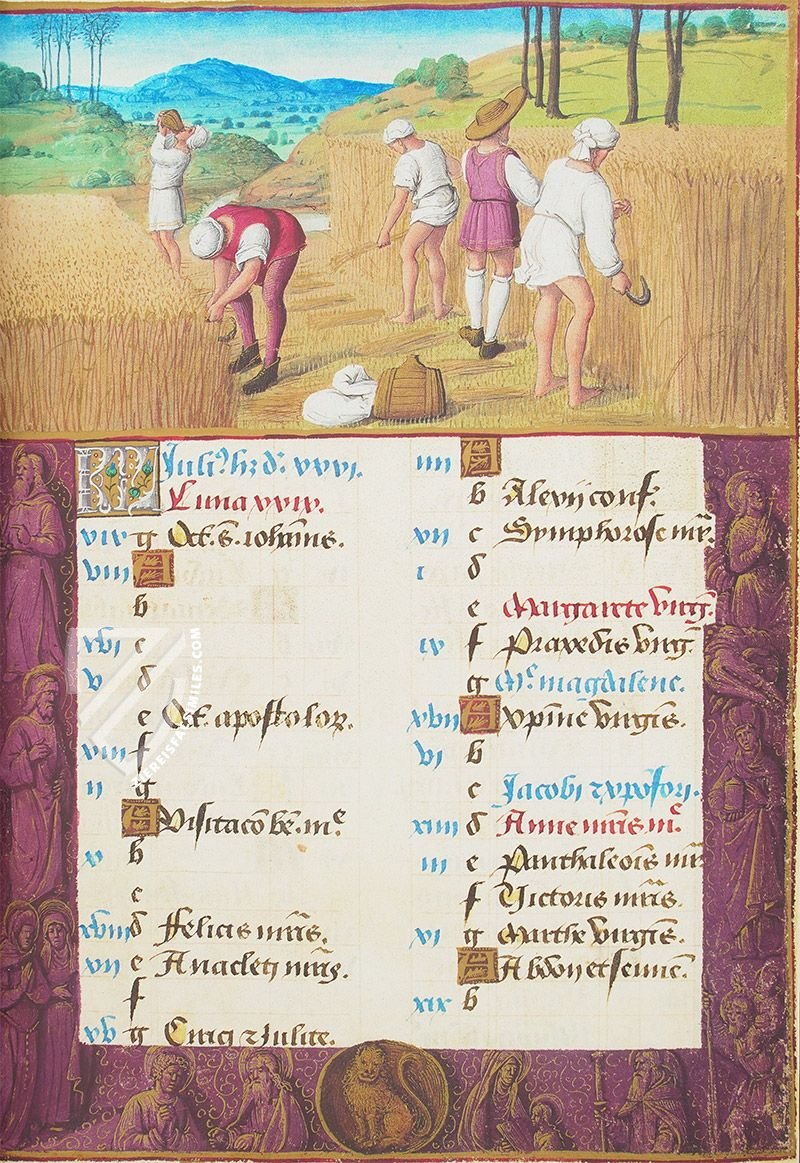 KL Julius hȝ dˢ. xxxi.
Luna xxix.
xix g Oct. S. iohānis.
viii A
b
xvi c
v d
e Oct. apostolor.
xiii f
ii g
A Visitacō bē. mᵉ
x b
c
xviii d Felicis mr̄is.
vii e Anacleti mr̄is.
f
xv g Cirici ⁊ Julite.
iiii A
b Alexii conf.
xii c Symphorose mr̄.
i d
e Margarete virg̃.
ix f Praxedis virg̃.
g Mᵉ magdalene.
xvii A Xpine virgīs.
vi b
c Jacobi ⁊ xpofori.
xiiii d Anne mr̄is mᵉ.
iii e Panthaleōis mr̄
f Victoris mr̄is.
xi g Marthe virgīs.
A Abdon et senne.
xix b
ZIEREISFACSIMILES.COM